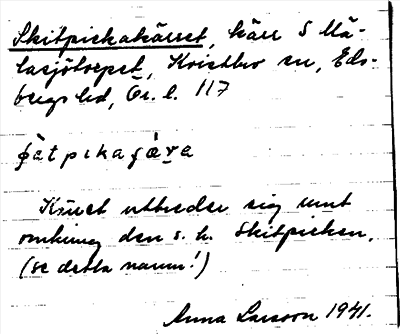 Skitpickakärret, kärr S Må-
lasjötorpet, Kvistbro sn, Eds-
bergs hd, Ör. l. 117
Käret utbreder sig runt
omkring den s. k. Skitpickan.
(se detta namn!)
Anna Larsson 1941.